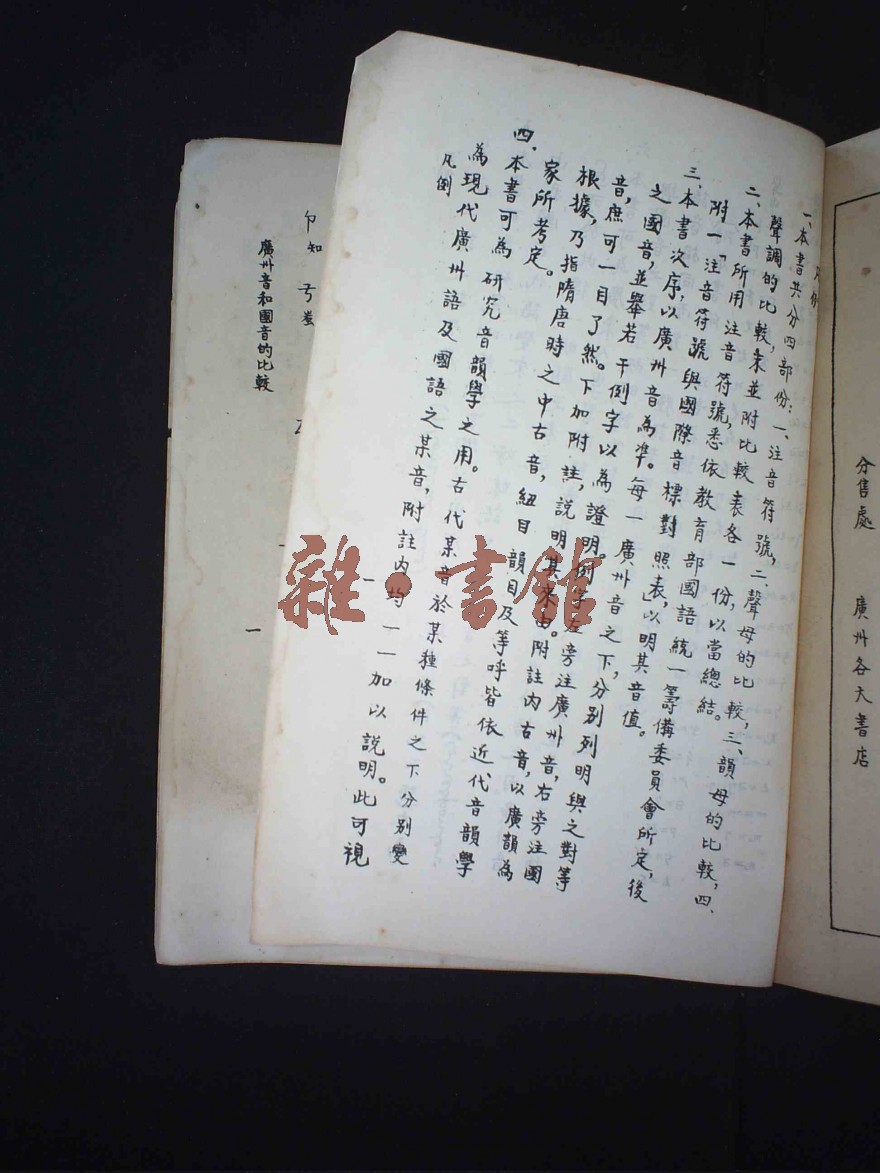 分售處　廣州各大書店
凡例
一、本書共分四部份：一、注音符號，二、聲母的比較，三、韻母的比較，四、
聲調的比較，末並附比較表各一份，以當總結。
二、本書所用注音符號，悉依教育部國語統一籌備委員會所定，後
附一「注音符號與國際音標對照表」以明其音值。
三、本書次序，以廣州音為準。每一廣州音之下，分別列明與之對等
之國音，並舉若干例字以為證明。例字左旁注廣州音，右旁注國
音，庶可一目了然。下加附註，說明其來由。附註內古音，以廣韻為
根據，乃指隋唐時之中古音，紐目韻目及等呼皆依近代音韻學
家所考定。
四、本書可為研究音韻學之用。古代某音於某種條件之下分別變
為現代廣州語及國語之某音，附註內均一一加以說明。此可視
凡例
一
卩知
ㄎ
廣州音和國音的比較
一
雜·書館